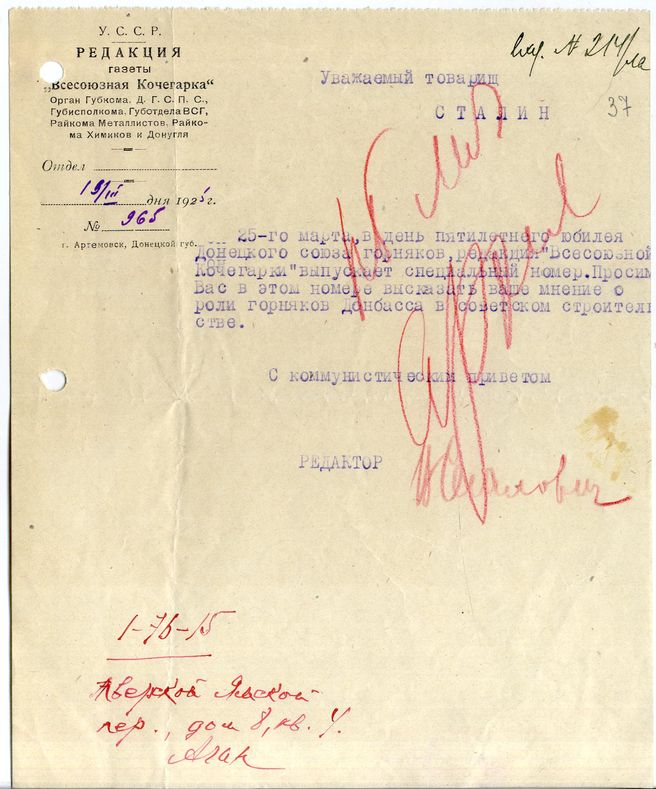 У. С. С. Р.
РЕДАКЦИЯ
газеты
„Всесоюзная Кочегарка“
Орган Губкома, Д. Г. С. П. С.,
Губисполкома, Губотдела ВСГ,
Райкома Металлистов, Райко-
ма Химиков и Донугля
Отдел
19/III дня 1925 г.
№ 965
г. Артемовск, Донецкой губ.
вх. № 214/
37
Уважаемый товарищ
СТАЛИН
25-го марта, в день пятилетнего юбилея
Донецкого союза горняков, редакция "Всесоюзной
Кочегарки" выпускает специальный номер. Просим
Вас в этом номере высказать ваше мнение о
роли горняков Донбасса в советском строитель
стве.
С коммунистическим приветом
РЕДАКТОР
1-76-15
пер., дом 8, кв. 4.